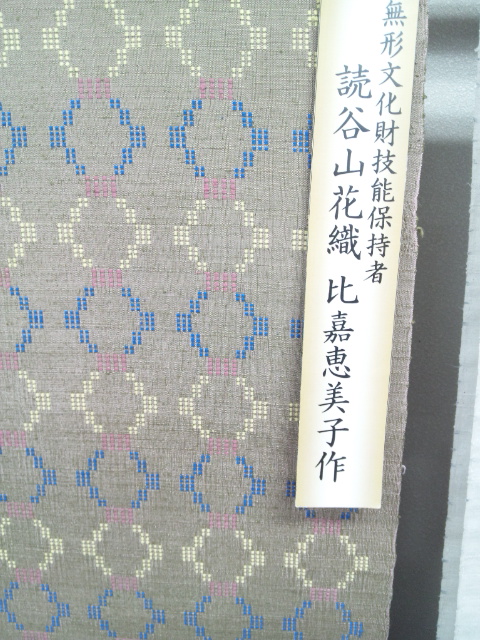 無形文化財技能保持者
読谷山花織 比嘉恵美子作